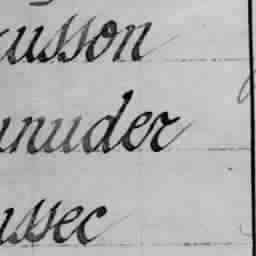 usson
nuder
ussec